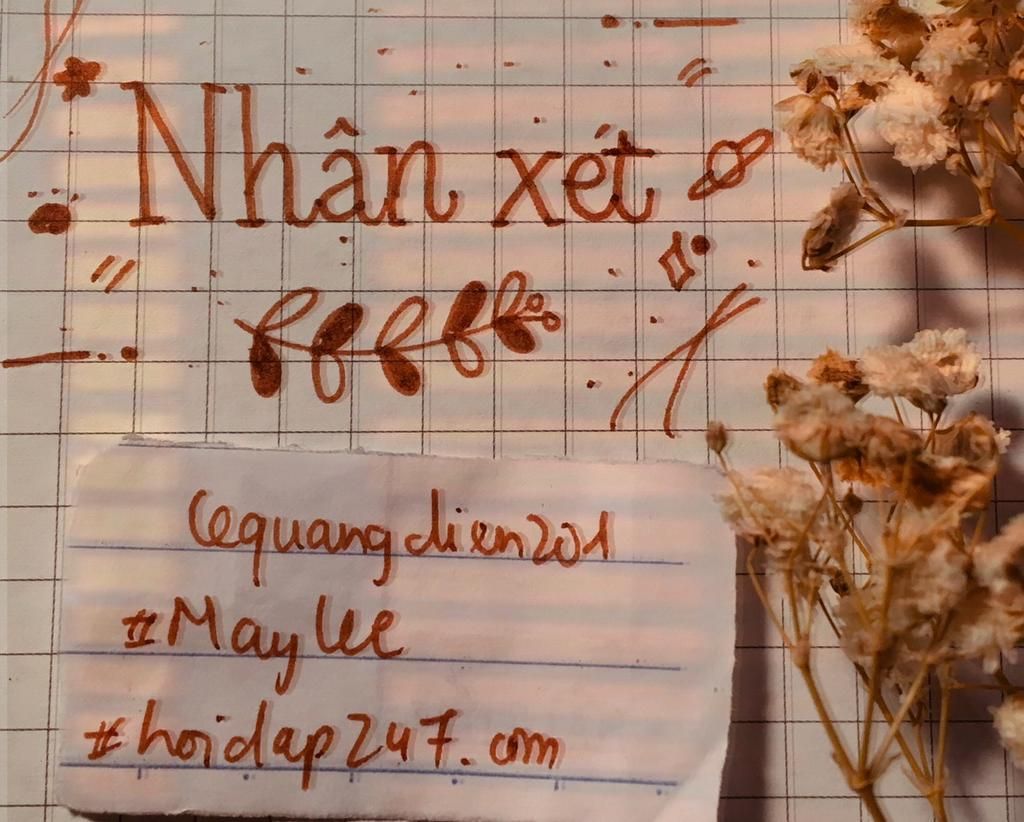 Nhân xét
lequangdien201
#May lee
#hoidap247.com